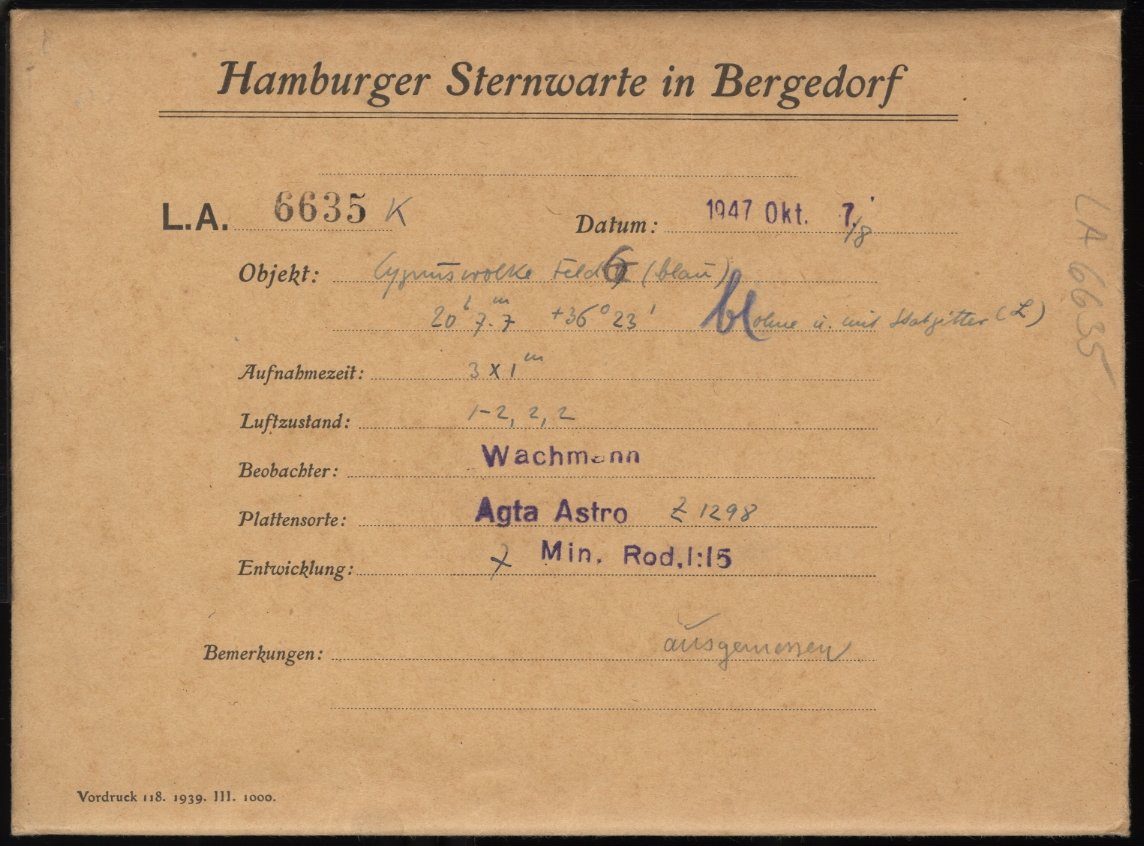 Hamburger Sternwarte in Bergedorf
L.A. 6635 K Datum: 1947 Okt. 7./8
Objekt: Cygnuswolke Feld 6 (blau)
20h 7.m7 +36° 23' bl ohne u. mit (L)
Aufnahmezeit: 3 x 1m
Luftzustand: 1-2, 2, 2
Beobachter: Wachmann
Plattensorte: Agfa Astro Z 1298
Entwicklung: x Min. Rod. 1:15
Bemerkungen: ausgemessen
Vordruck 118. 1939. III. 1000.
LA 6635